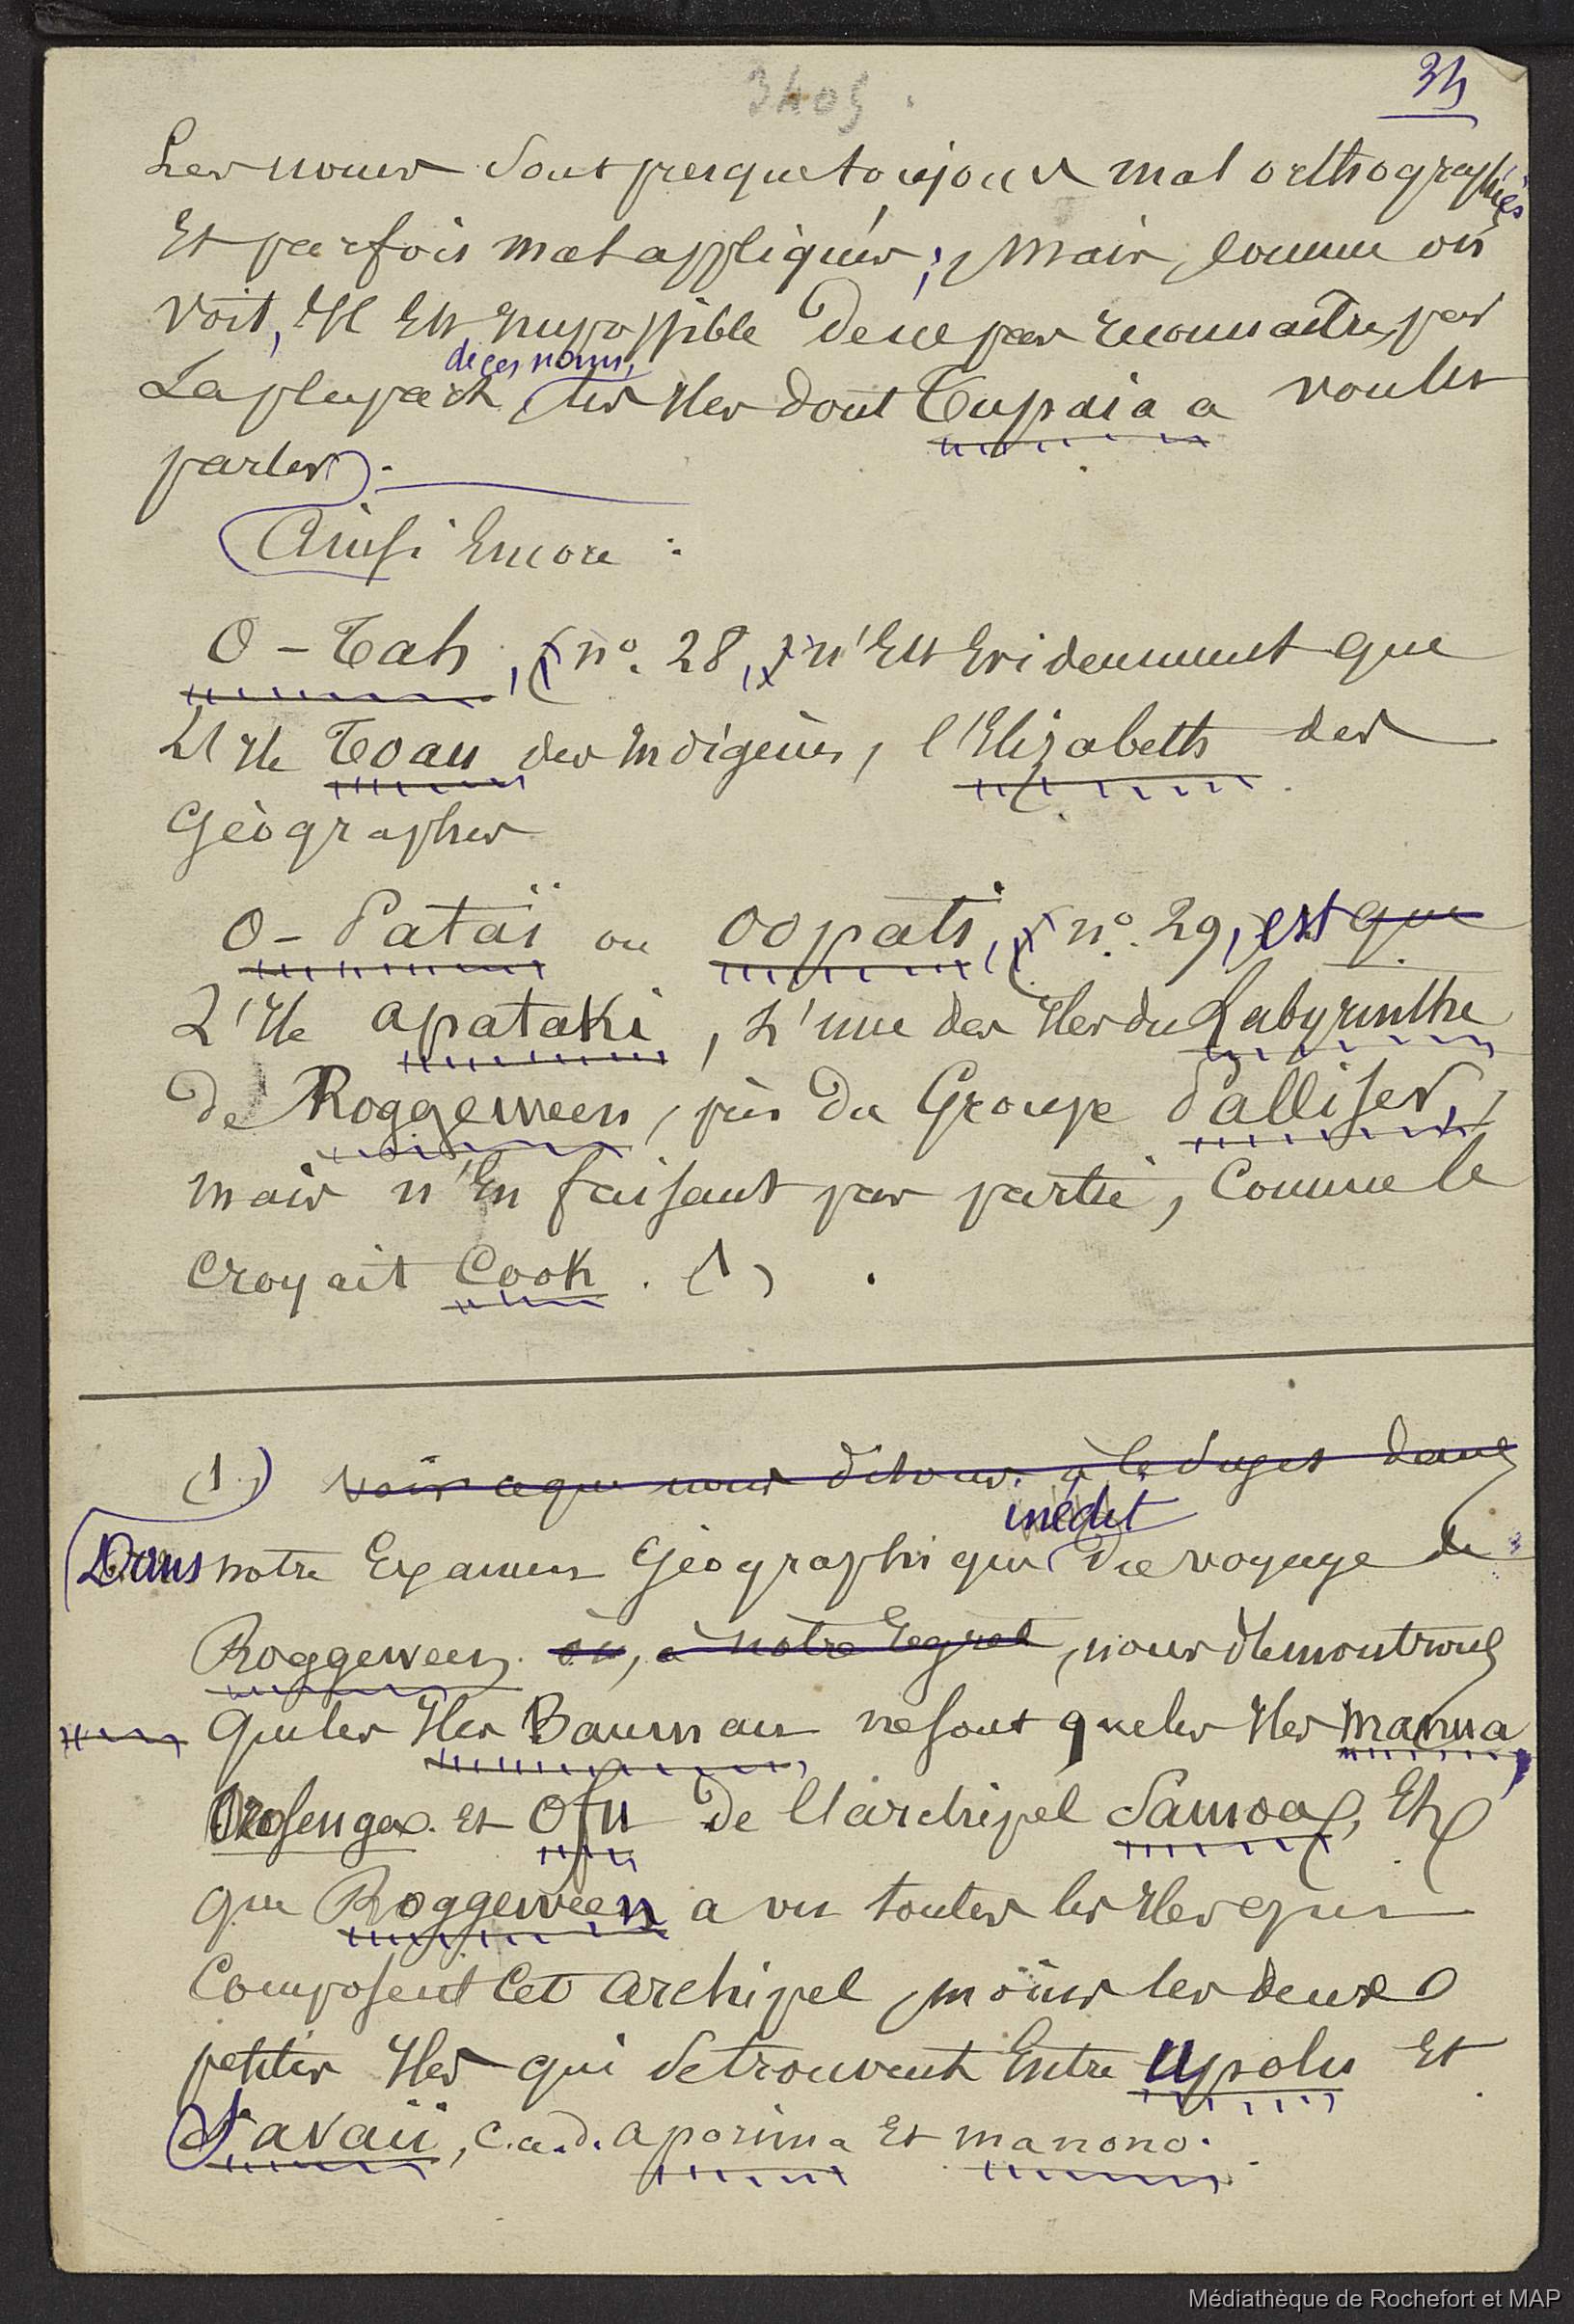 3405.
34
Les noms sont presque toujours mal orthographiés
Et parfois mal appliqués; mais, comme on
voit, il Est impossible de ne pas reconnaître, par
La plupart de ces noms, les Iles dont Tupaia a voulu
parler.
Ainsi Encore :
O-Tah, (n°. 28,) n'Est Evidemment que
L'Ile Toau des Indigènes, l'Elizabeth des
Géographes
O-Pataï ou Oopati, (n°. 29, est que
L'Ile apataki, L'une des Iles du Labyrinthe
De Roggeween, près du Groupe Palliser,
mais n'En faisant pas partie, Comme le
croyait Cook. (1)
(1) voir ce que nous disons à ce sujet dans
inédit
Dans notre Examen Géographique du voyage de
Roggeween où, à notre Regret, nous démontrons
que les Iles Bauman ne sont que les Iles Manua,
Orosenga et Ofu De l'archipel Samoa, Et
que Roggeween a vu toutes les Iles qui
Composent Cet archipel, moins les deux
petites Iles qui se trouvent Entre Upolu Et
Savaii, c.a.d. aporima Et manono.
Médiathèque de Rochefort et MAP